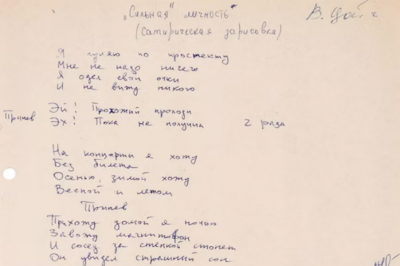 „Сильная" личность"
(Сатирическая зарисовка)
В. Цой
Я гуляю по проспекту
Мне не надо ничего
Я одел свои очки
И не вижу никого
Припев Эй! Прохожий проходи
Эх! Пока не получил 2 раза
На концерты я хожу
Без билета
Осенью, зимой хожу
Весной и летом
Припев
Прихожу домой я ночью
Завожу магнитофон
И сосед за стенкой стонет
Он увидел страшный сон